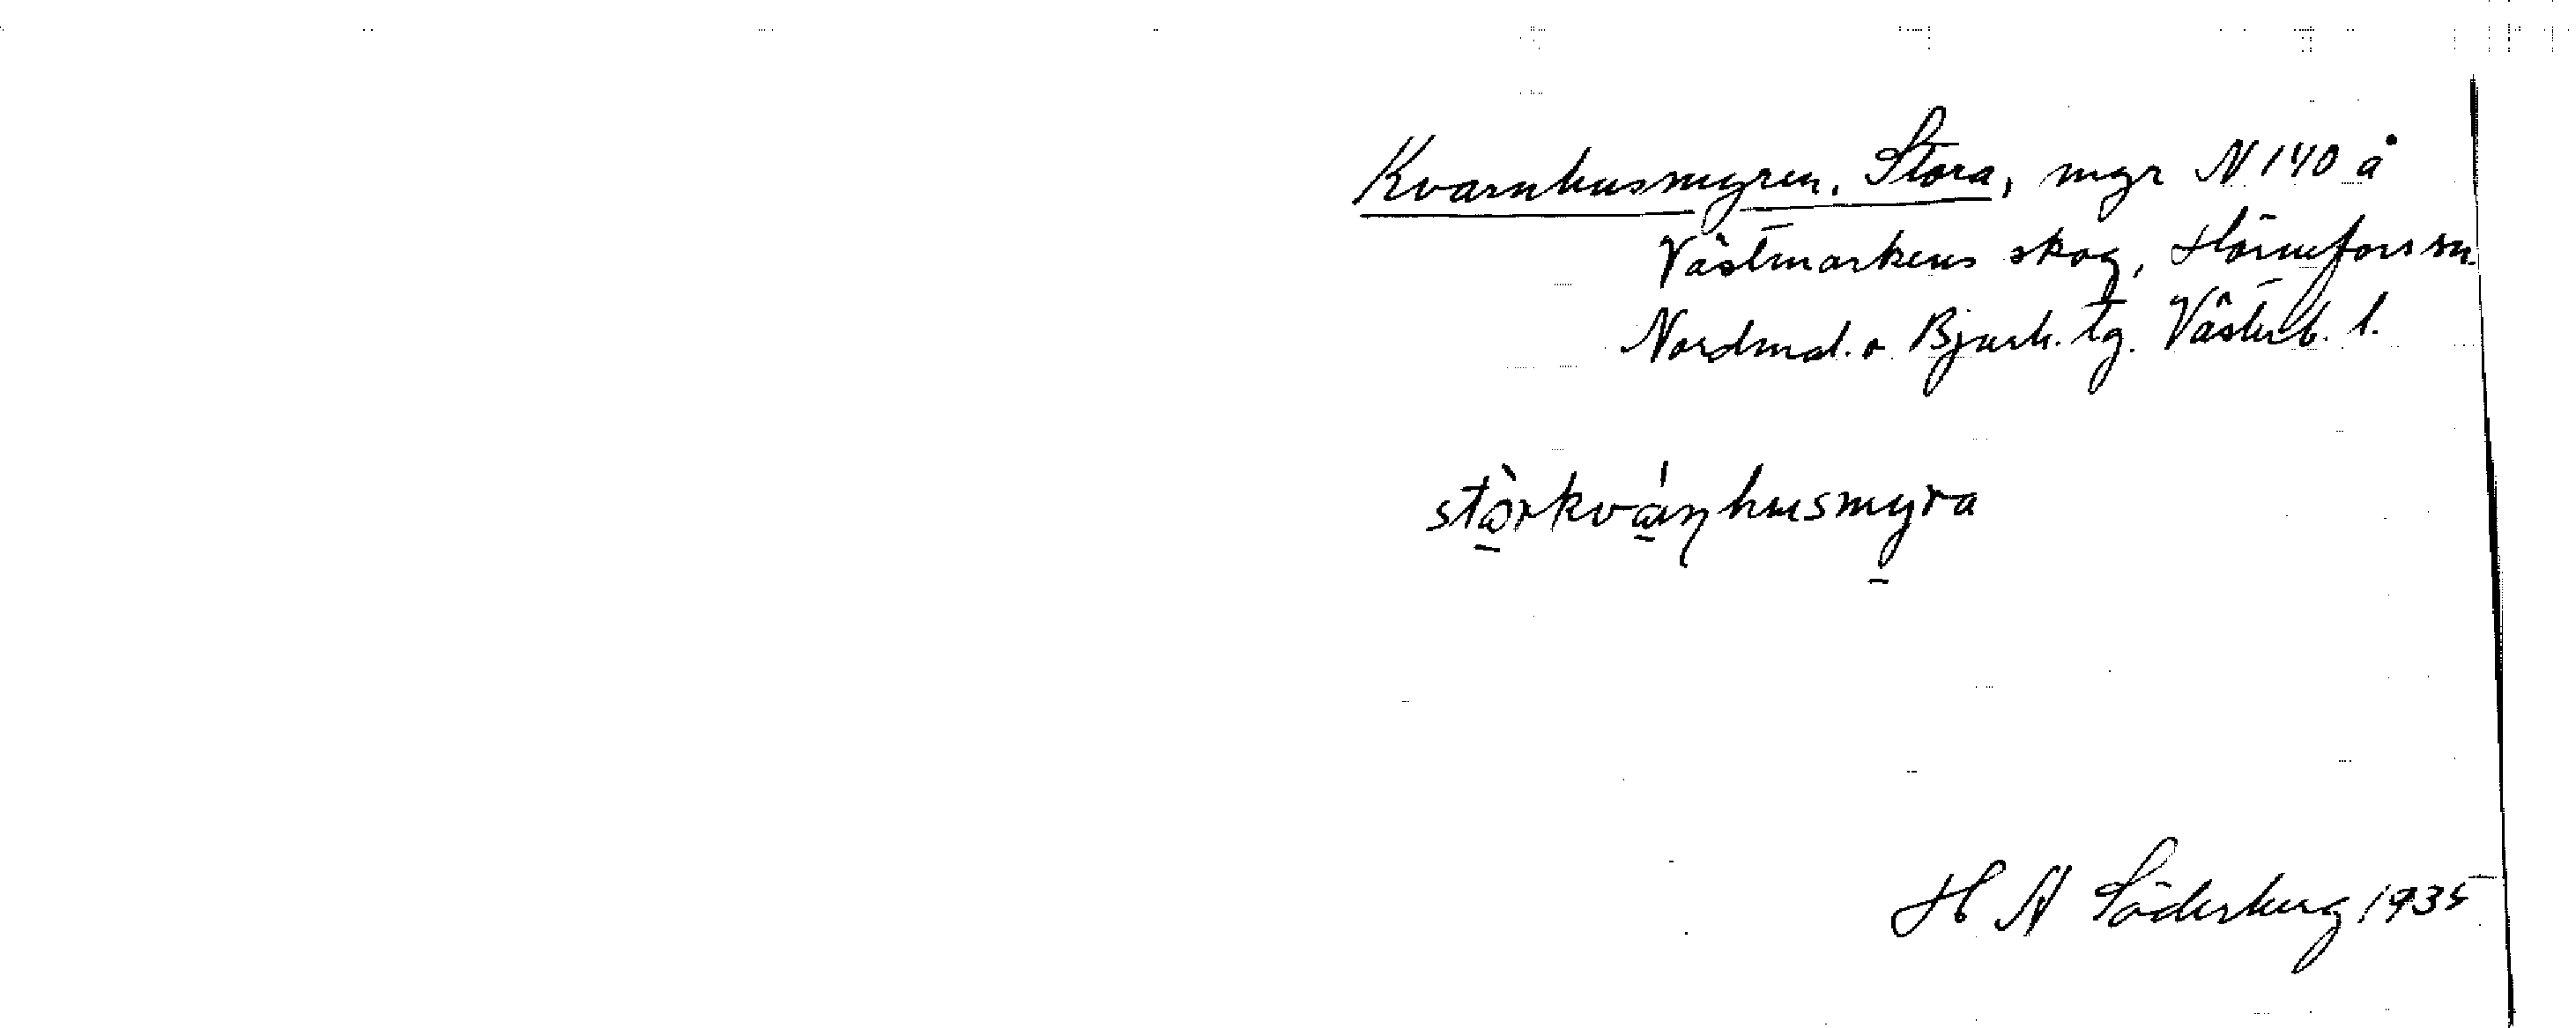 Kvarnhusmyren, Stora, myr N 140 å
Västmarkens skog, Hörnefors sn
Nordmal. o Bjurh. tg. Västerb. l.
stòrkváṇhusmyra
H A Söderberg 1935